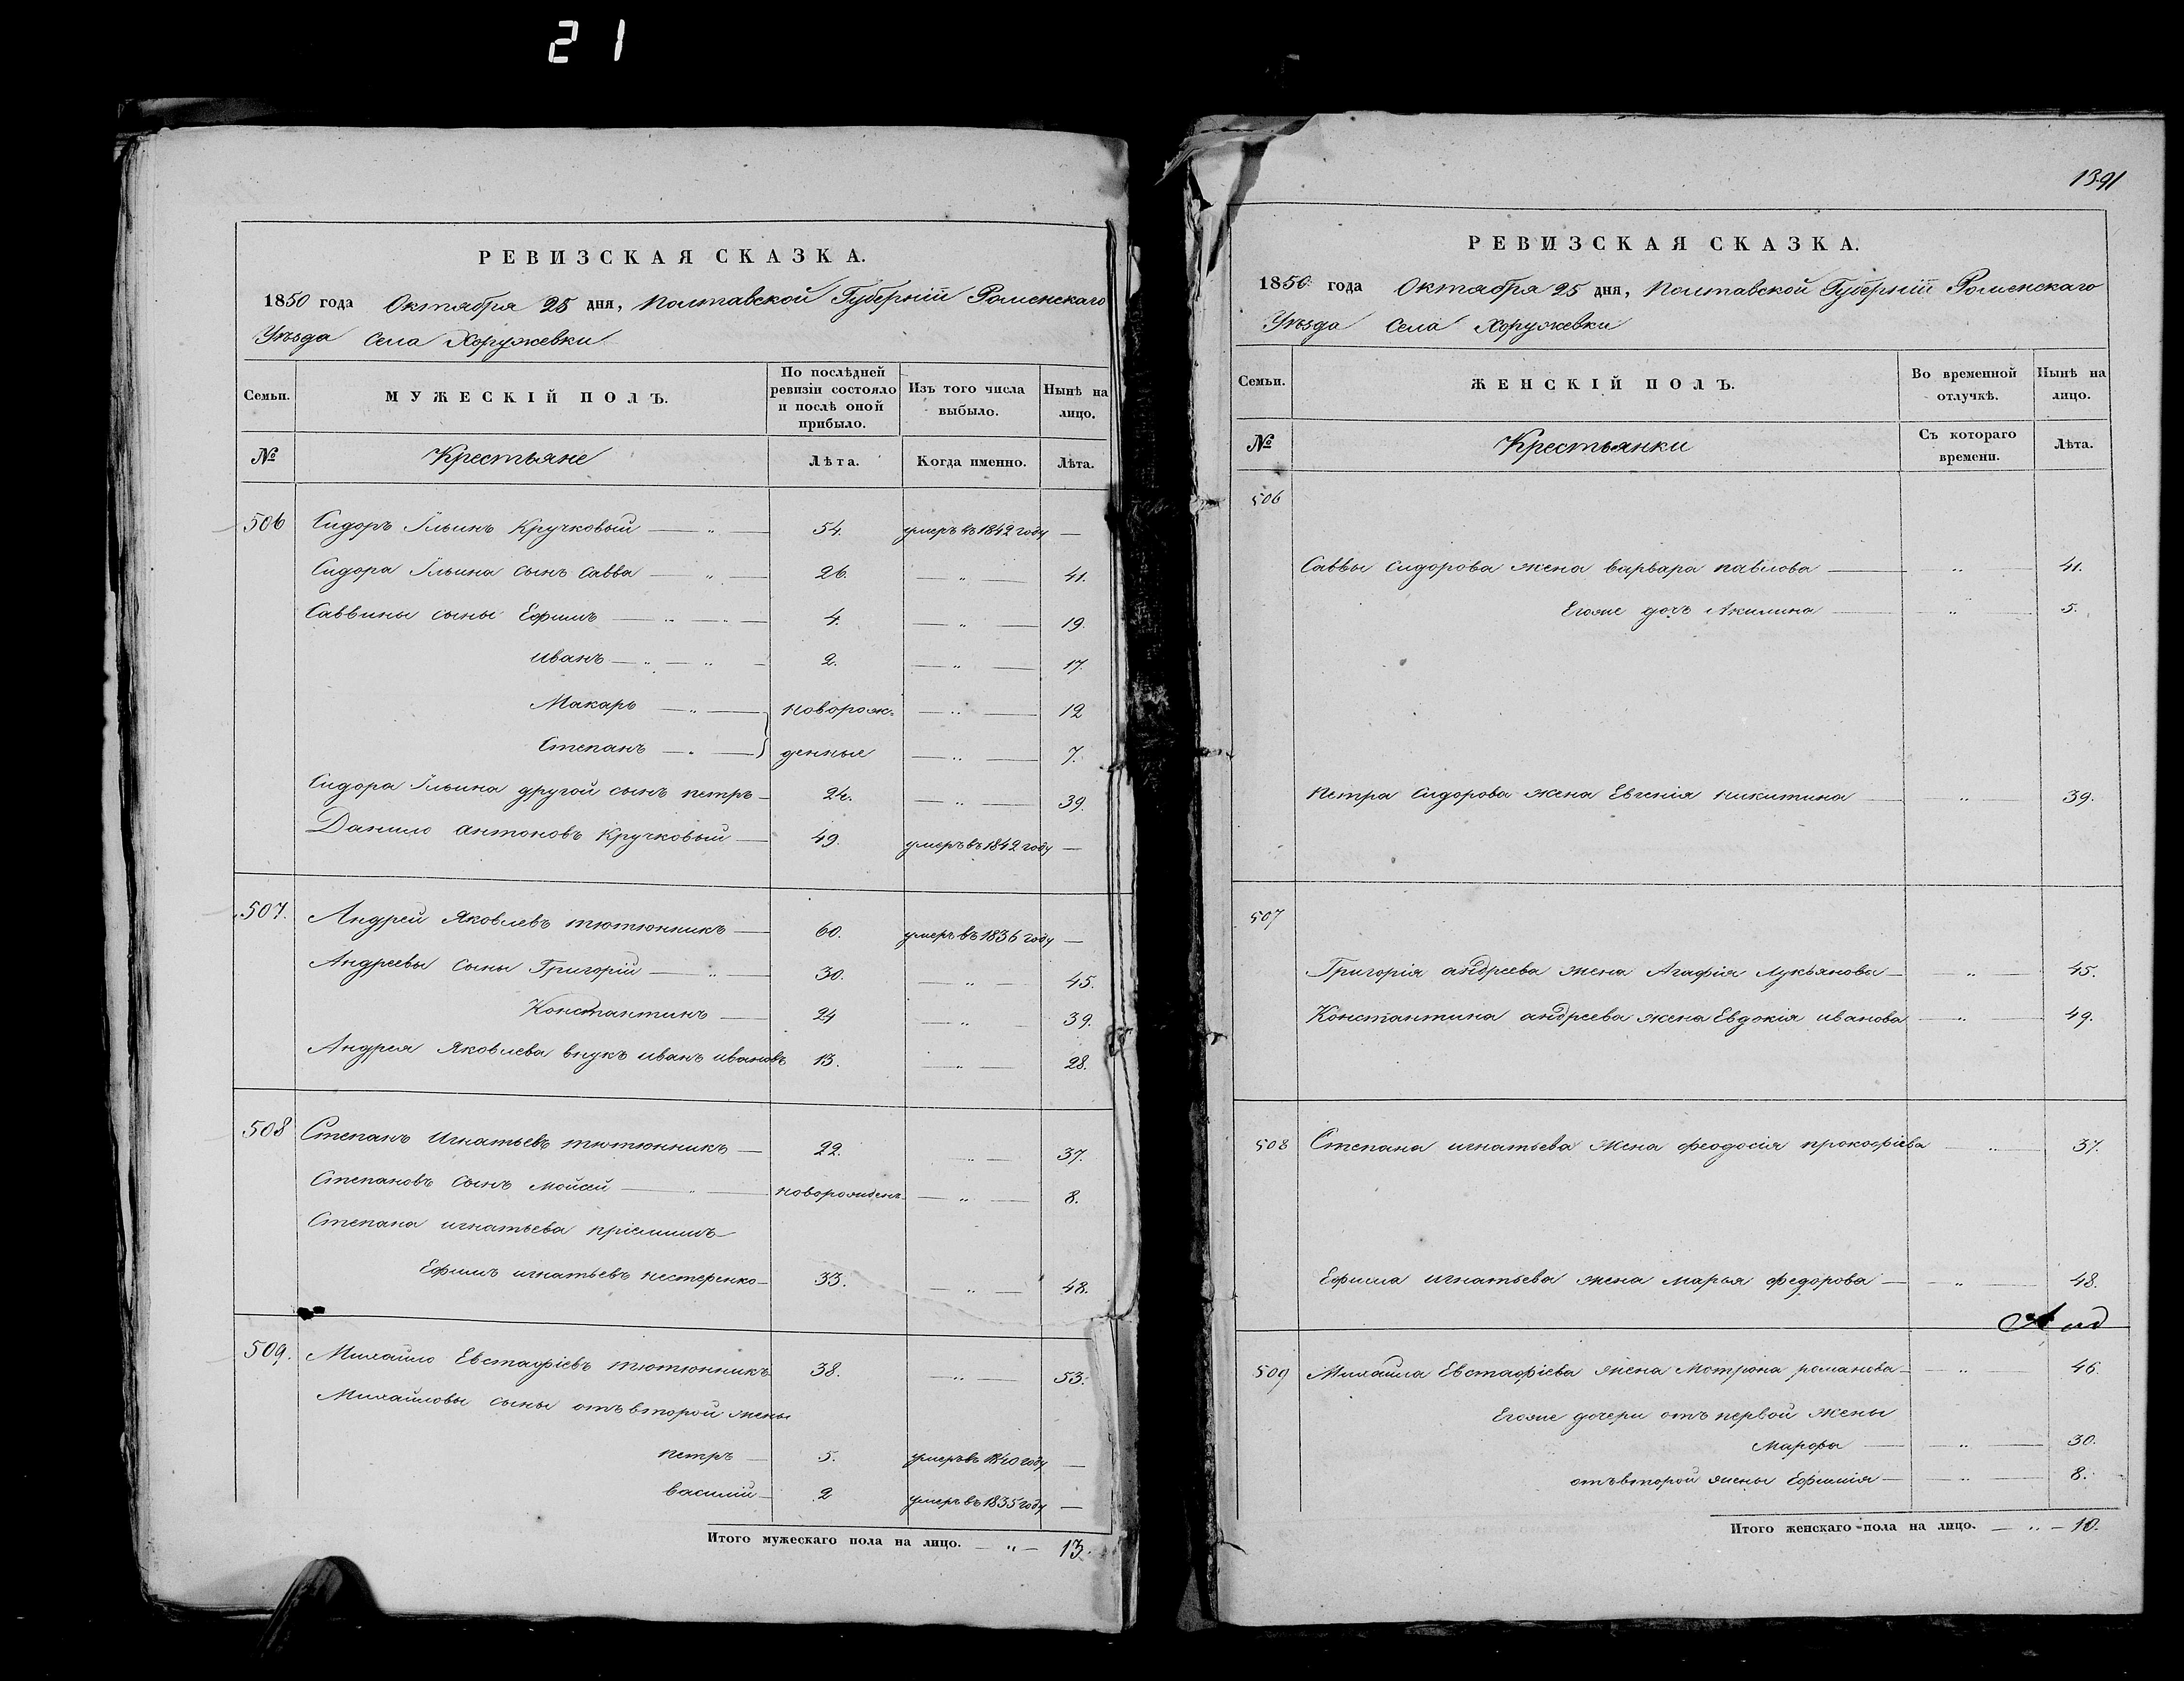 21
РЕВИЗСКАЯ СКАЗКА.
1850 года Октября 25 дня, Полтавской Губерніи Роменскаго
Уѣзда Села Хоружевки
Семьи. МУЖЕСКІЙ ПОЛЪ. По послѣдней ревизіи состояло и послѣ оной прибыло. Изъ того числа выбыло. Нынѣ на лицо.
№ Крестьяне Лѣта. Когда именно. Лѣта.
506 Сидоръ Ильинъ Кручковый — „ — 54. умеръ въ 1842 году —
Сидора Ильина сынъ Савва — „ — 26. „ — 41.
Саввины сыны Ефимъ — „ — „ — 4. — „ — 19.
Иванъ — „ — „ — 2. — „ — 17.
Макаръ — „ — новорож- — „ — 12
Степанъ — „ — денные — „ — 7.
Сидора Ильина другой сынъ петръ — 24. — „ — 39.
Данило антоновъ Кручковый — 49. умеръ въ 1842 году —
507. Андрей Яковлевъ тютюнникъ — 60. умеръ въ 1836 году —
Андреевы сыны Григорій — „ — 30. — „ — 45.
Константинъ — 24 — „ — 39.
Андрея Яковлева внукъ иванъ ивановъ 13. — „ — 28.
508 Степанъ Игнатьевъ тютюнникъ — 22. — „ — 37.
Степановъ сынъ мойсей — „ — новорожденъ — „ — 8.
Степана игнатьева пріемышъ
Ефимъ игнатьевъ нестеренко — 33. — „ — 48.
509. Михайло Евстафіевъ тютюнникъ 38. — „ — 53.
Михайловы сыны отъ второй жены
петръ — 5. умеръ въ 1840 году —
василій — 2 умеръ въ 1835 году —
Итого мужескаго пола на лицо. — „ — 13.
1391
РЕВИЗСКАЯ СКАЗКА.
1850 года Октября 25 дня, Полтавской Губерніи Роменскаго
Уѣзда Села Хоружевки
Семьи. ЖЕНСКІЙ ПОЛЪ. Во временной отлучкѣ. Нынѣ на лицо.
№ Крестьянки Съ котораго времени. Лѣта.
506
Саввы сидорова жена варвара павлова — „ — 41.
Егоже дочь Акилина — „ — 5.
Петра сидорова жена Евгенія никитина — „ — 39.
507
Григорія андреева жена Агафія Лукьянова — „ — 45.
Константина андреева жена Евдокія иванова — „ — 49.
508 Степана игнатьева жена феодосія прокофіева — „ — 37.
Ефима игнатьева жена марья федорова — „ — 48.
509 Михайла Евстафіева жена Мотрона романова — „ — 46.
Егоже дочери отъ первой жены
Марфа — „ — 30.
отъ второй жены Ефимія — „ — 8.
Итого женскаго пола на лицо. — „ — 10.